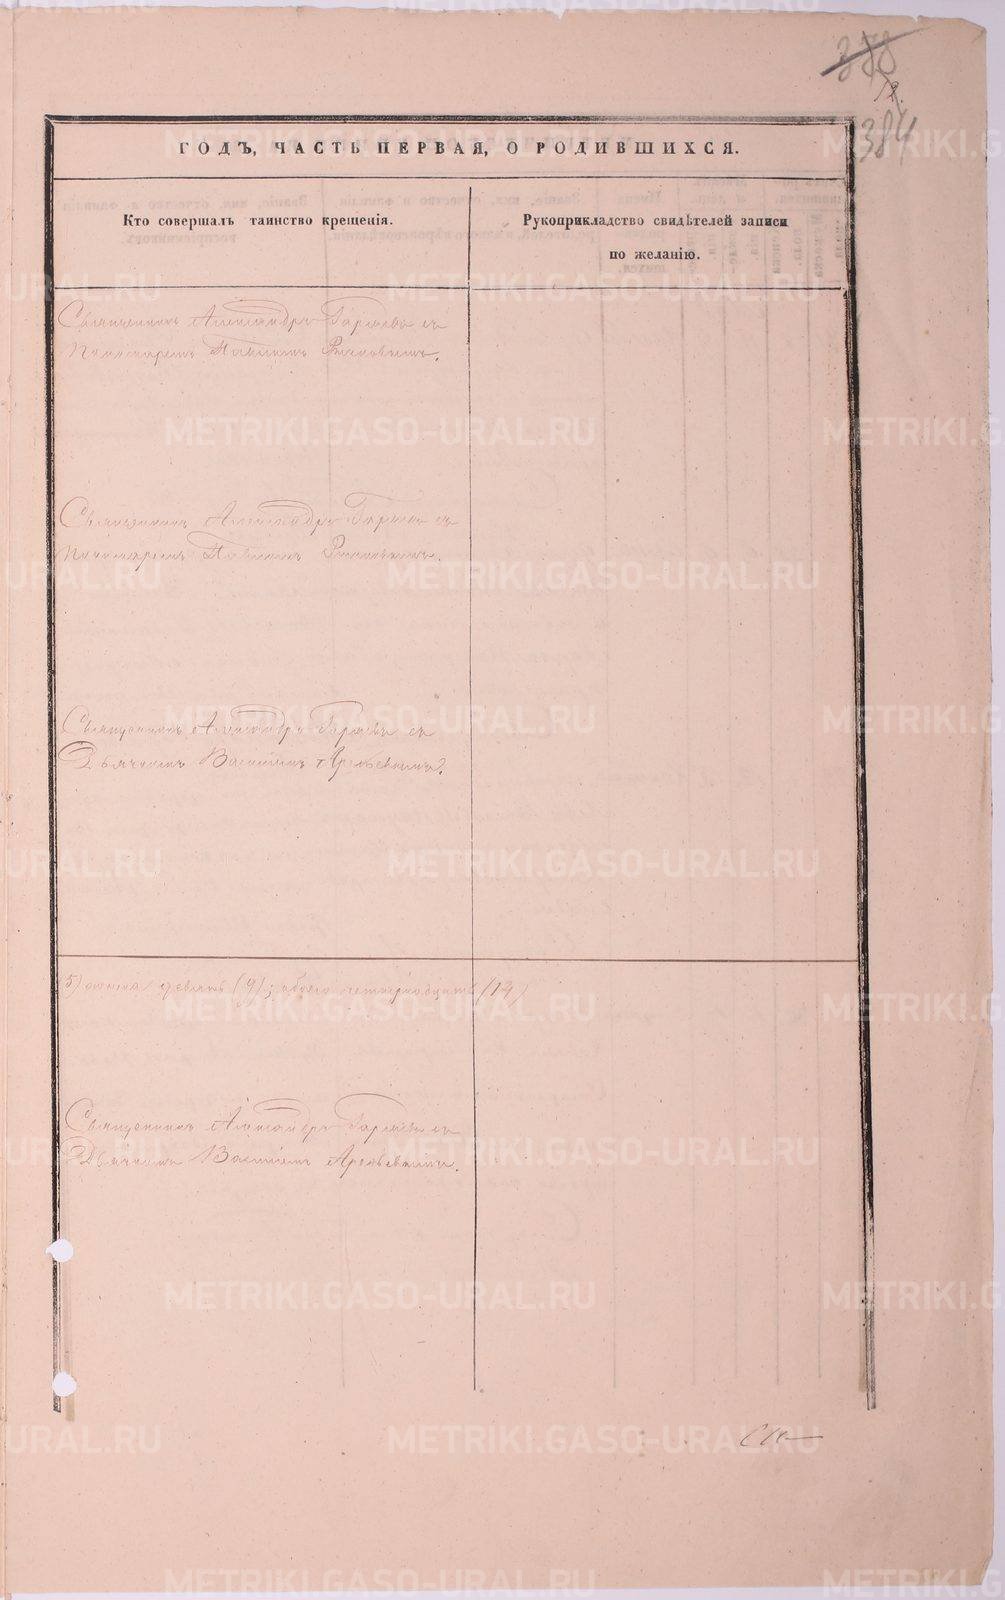 378
12.
384
ГОДЪ, ЧАСТЬ ПЕРВАЯ, О РОДИВШИХСЯ.
Кто совершалъ таинство крещенія.
Рукоприкладство свидѣтелей записи
по желанію.
Священникъ Александръ съ
Пономаремъ Павломъ
Священникъ Александръ съ
Пономаремъ Павломъ
Священникъ Александръ съ
Дьячкомъ Василіемъ
5) женска девять (9); обоего четырнадцать (14)
Священникъ Александръ съ
Дьячкомъ Василіемъ
METRIKI.GASO-URAL.RU